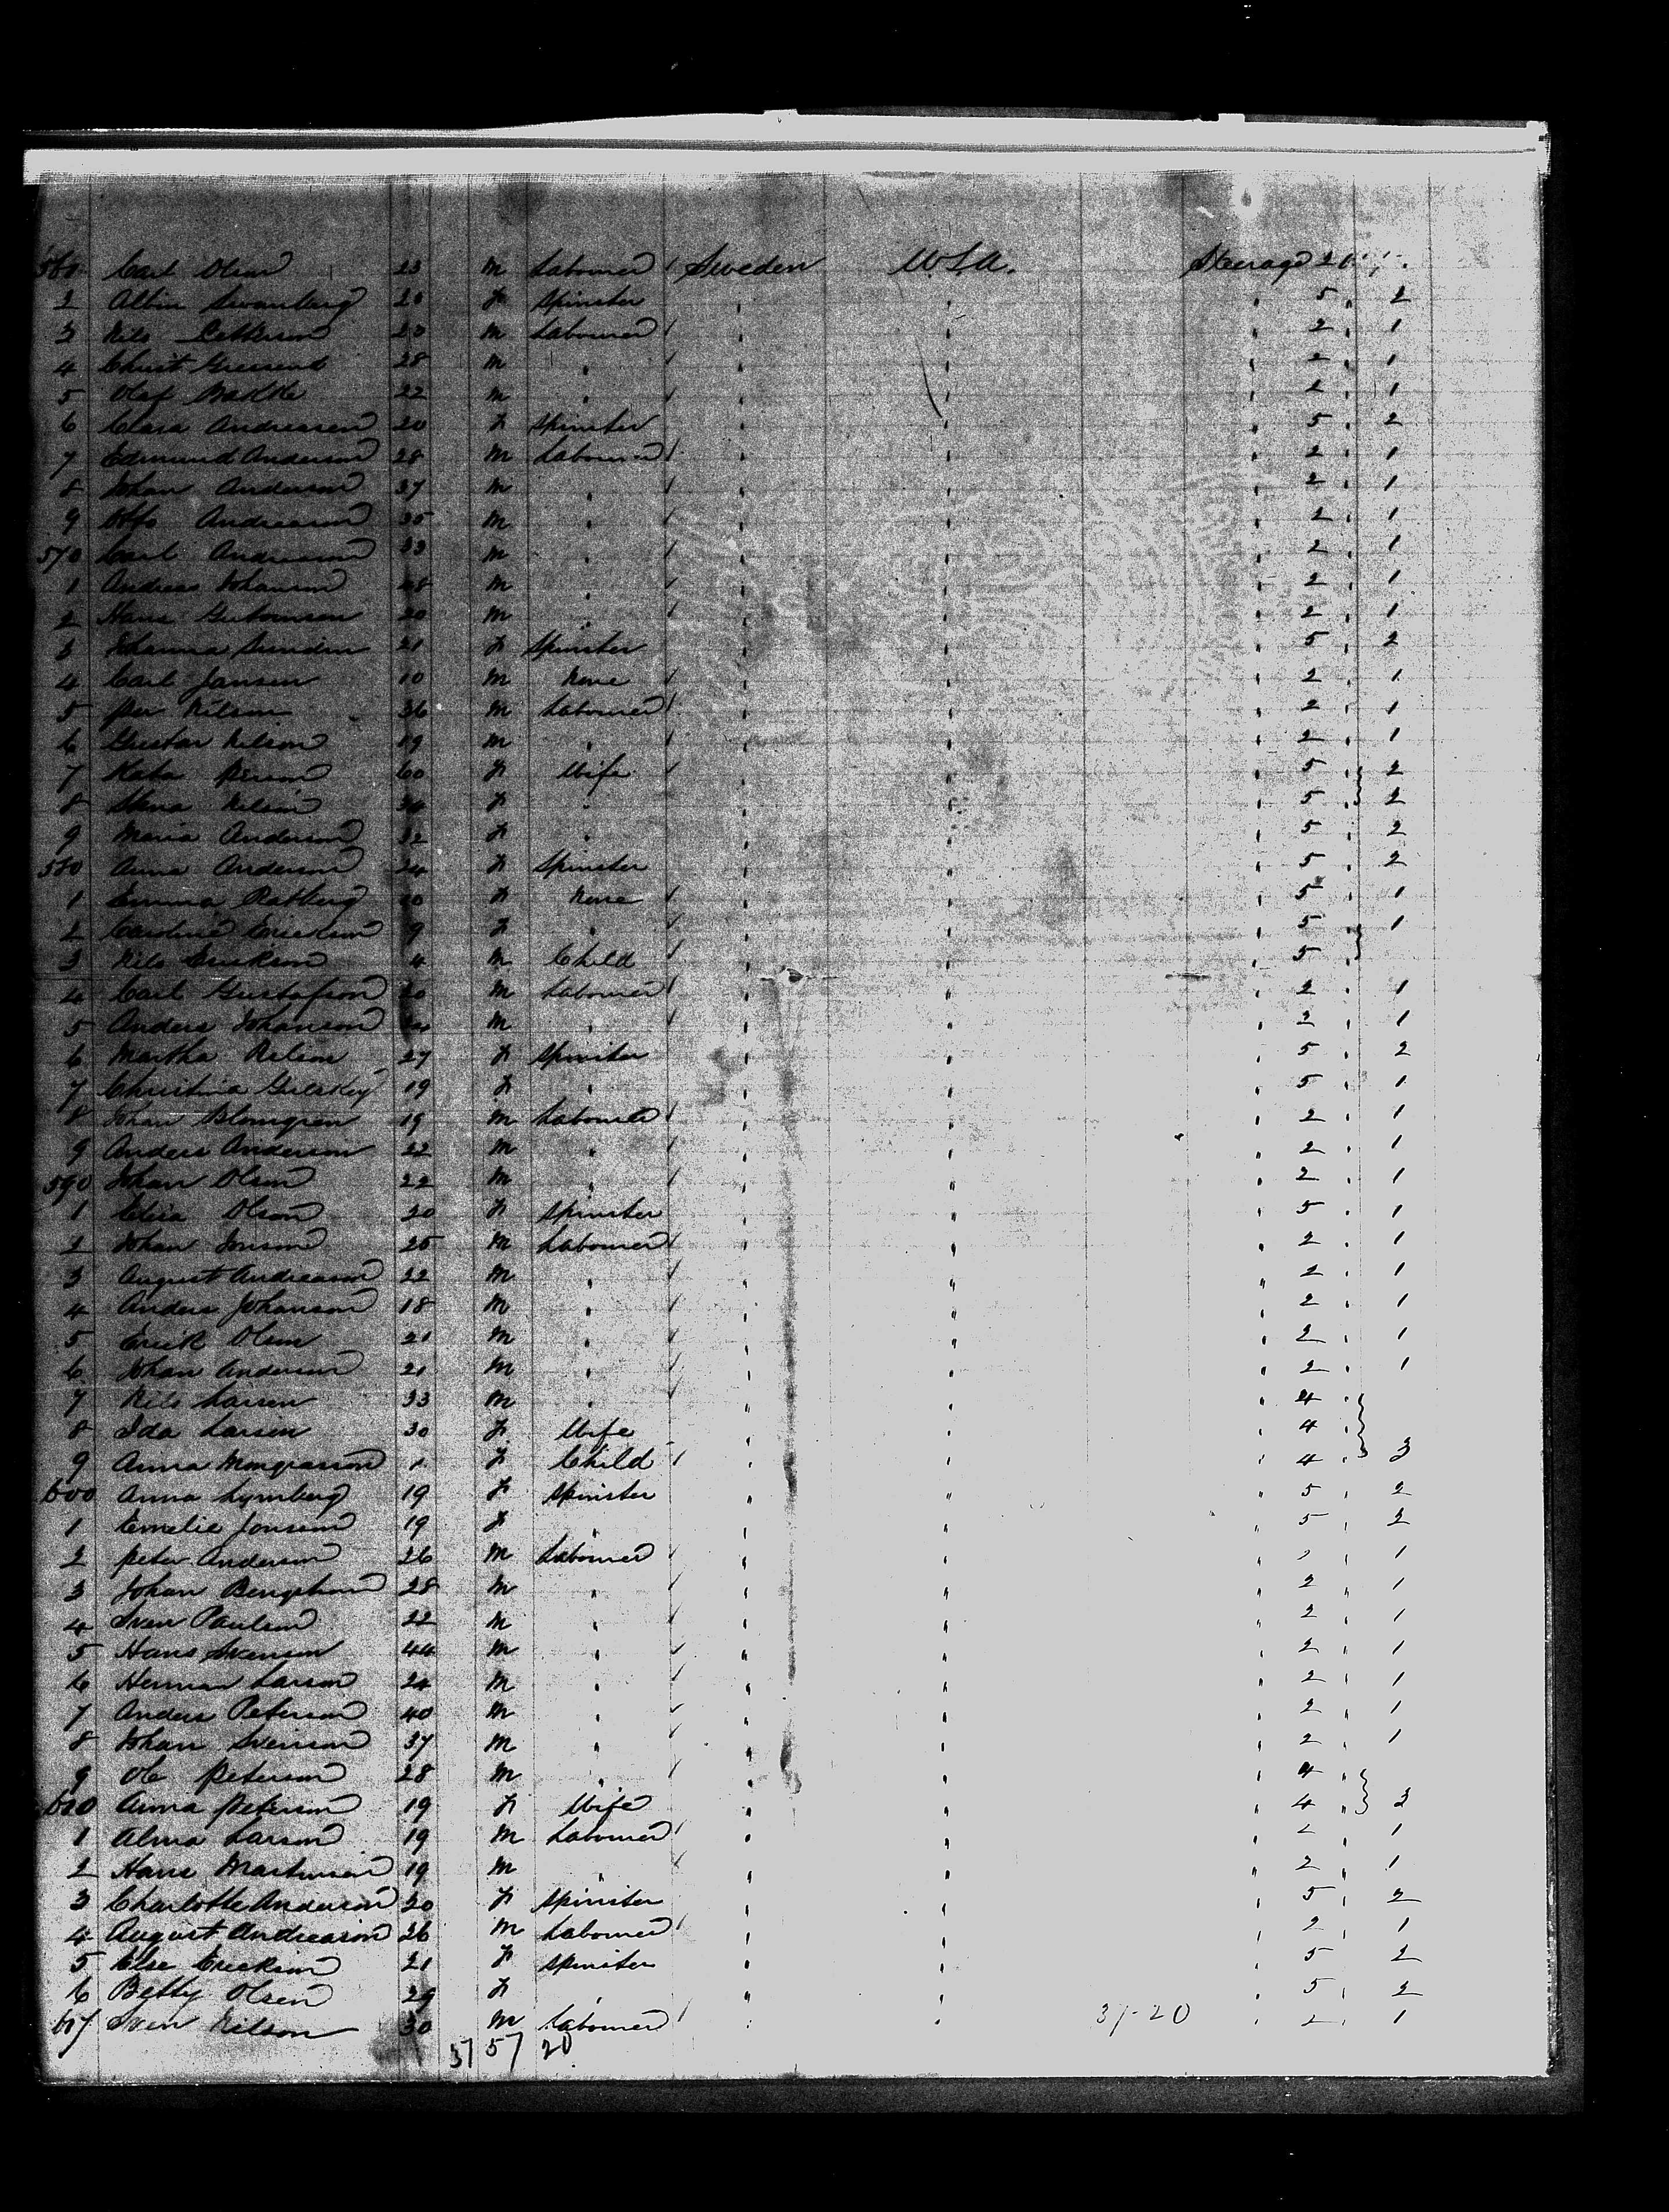 561 Carl Olson 23 m Labourer / Sweden U.S.A. Steerage 2
2 Albin Swanberg 20 f Spinster " " " 5 " 2
3 Nils Petterson 20 m Labourer / " " " 2 " 1
4 Christ 28 m " / " " " 2 " 1
5 Olaf 22 m " / " " " 2 " 1
6 Clara Andreasen 20 f Spinster " " " 5 " 2
7 Edmund Anderson 28 m Labourer / " " " 2 " 1
8 Johan Anderson 37 m " / " " " 2 " 1
9 Andreason 35 m " / " " " 2 " 1
570 Carl Andreason 33 m " / " " " 2 " 1
1 Andreas Johanson 48 m " / " " " 2 " 1
2 Hans 20 m " / " " " 2 " 1
3 Johanna Sundin 21 f Spinster " " " 5 " 2
4 Carl Jansen 10 m None / " " " 2 " 1
5 Per Nilson 36 m Labourer / " " " 2 " 1
6 Gustav Nilson 19 m " / " " " 2 " 1
7 Person 60 f Wife / " " " 5 " 2
8 Nilson 34 f " " " " 5 " 2
9 Maria Anderson 32 f " " " " 5 " 2
580 Anna Anderson 24 f Spinster " " " 5 " 2
1 Emma 10 f None / " " " 5 " 1
2 Caroline Erickson 9 f " / " " " 5 " 1
3 Nils Erickson 4 m Child / " " " 5 "
4 Carl Gustafson 20 m Labourer / " " " 2 " 1
5 Anders Johanson m " / " " " 2 " 1
6 Martha Nilson 27 f Spinster " " " 5 " 2
7 Christina 19 f " " " " 5 " 1
8 Johan Blomgren 19 m Labourer / " " " 2 " 1
9 Anders Anderson 22 m " / " " " 2 " 1
590 Johan Olson 22 m " / " " " 2 " 1
1 Olson 20 f Spinster " " " 5 " 1
2 Johan Jonson 25 m Labourer / " " " 2 " 1
3 August Andreason 22 m " / " " " 2 " 1
4 Anders Johanson 18 m " / " " " 2 " 1
5 Erick Olson 21 m " / " " " 2 " 1
6 Johan Anderson 21 m " / " " " 2 " 1
7 Nils Larsen 33 m " / " " " 4 "
8 Ida Larsen 30 f Wife " " " 4 "
9 Anna 1 f Child / " " " 4 " 3
600 Anna Lynberg 19 f Spinster " " " 5 " 2
1 Emelie Jonson 19 f " " " " 5 " 2
2 Peter Anderson 26 m Labourer / " " " 2 " 1
3 Johan Bengtson 28 m " / " " " 2 " 1
4 Sven Paulson 22 m " / " " " 2 " 1
5 Hans Svenson 44 m " / " " " 2 " 1
6 Herman Larson 24 m " / " " " 2 " 1
7 Anders Peterson 40 m " / " " " 2 " 1
8 Johan Svenson 37 m " / " " " 2 " 1
9 Ole Peterson 28 m " / " " " 4 "
610 Anna Peterson 19 f Wife " " " 4 " 2
1 Alma Larson 19 m Labourer / " " " 2 " 1
2 Hans Martinson 19 m " / " " " 2 " 1
3 Charlotte Anderson 20 f Spinster " " " 5 " 2
4 August Andreason 26 m Labourer / " " " 2 " 1
5 Else Erickson 21 f Spinster " " " 5 " 2
6 Betty Olsen 29 f " " " " 5 " 2
617 Sven Nilson 30 m Labourer / " " 37-20 " 2 " 1
37 57 20